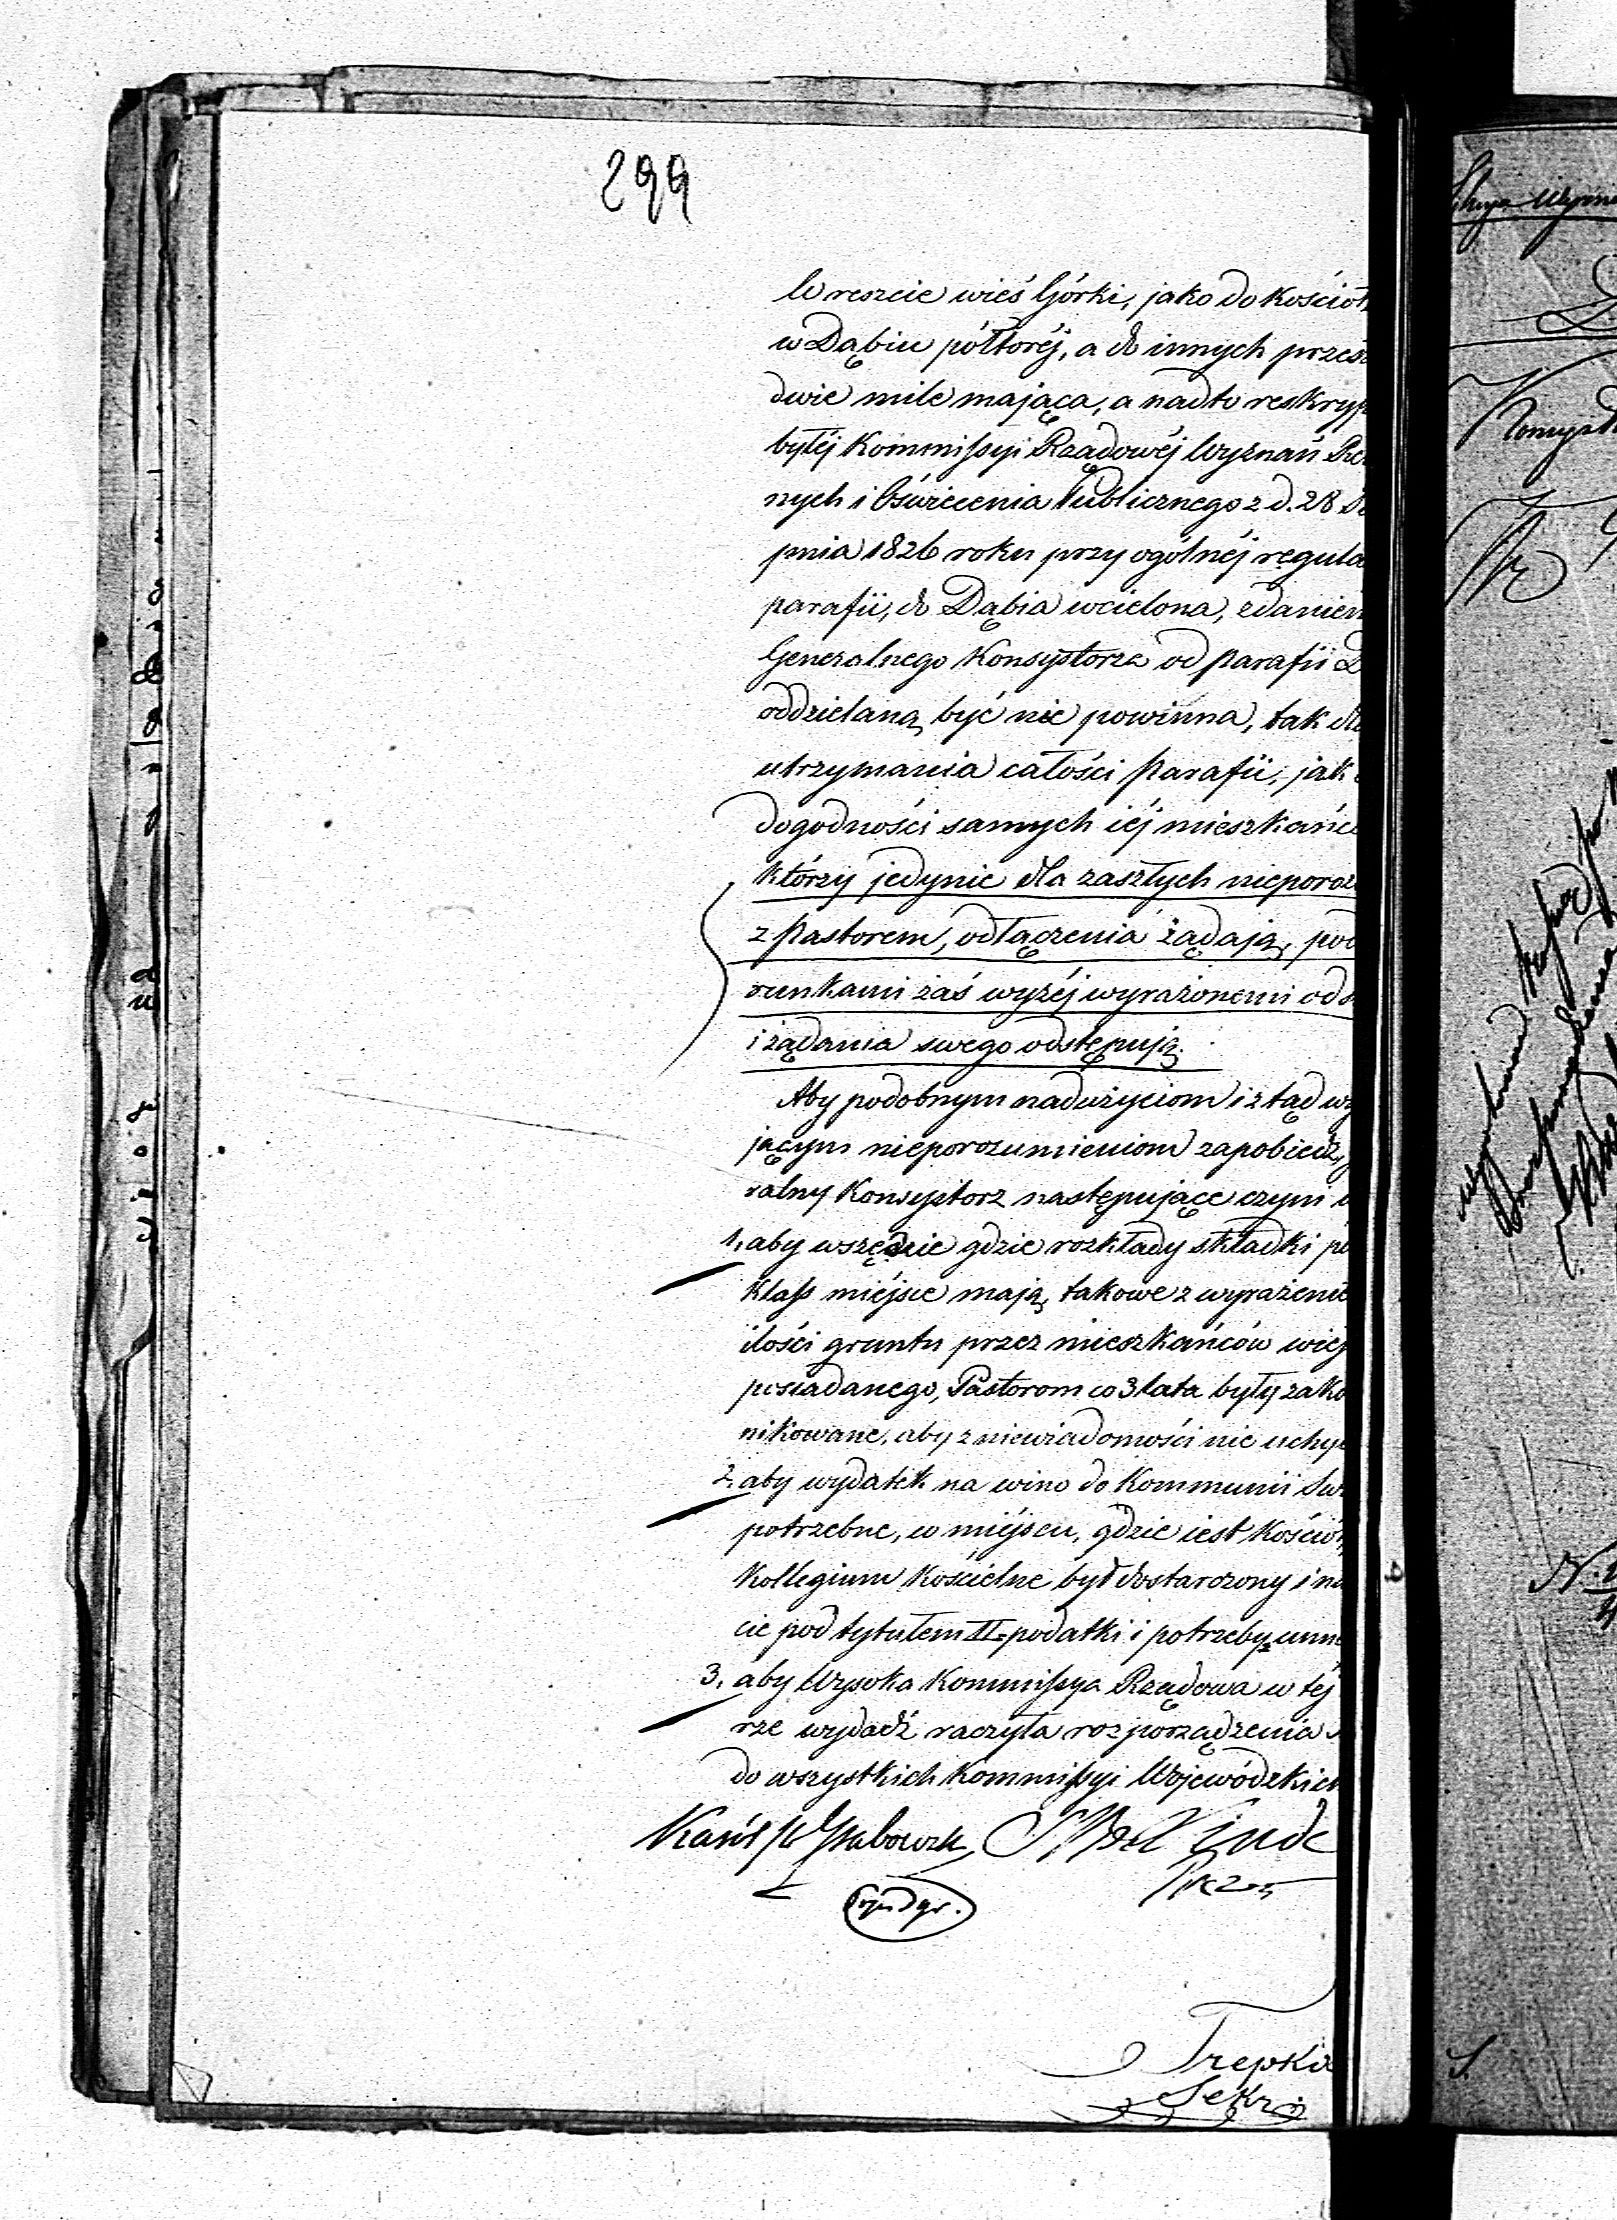 299
W reszcie wieś Górki, jako do Kościoł
w Dąbiu półtoréj, a do innych przesz
dwie mile mająca, a nadto reskryp
byłéj Kommissyi Rządowéj Wyznań Re
nych i Oświecenia Publicznego z d. 28
pnia 1826 roku przy ogólnéj regula
parafii, do Dąbia wcielona, zdaniem
Generalnego Konsystorza od parafii D
oddzielaną być nie powinna, tak dla
utrzymania całości parafii, jak
dogodności samych iéj mieszkańc
którzy jedynie dla zaszłych nieporoz
z Pastorem, odłączenia żądają, pod
runkami zaś wyżéj wyrażonemi od
i żądania swego odstępują.
Aby podobnym nadużyciom i ztąd wy
jącym nieporozumieniom zapobiedz,
ralny Konsystorz następujące czyni
1, aby wszędzie gdzie rozkłady składki po
Klass miéjsce mają, takowe z wyrażenie
ilości gruntu przez mieszkańców wiej
posiadanego, Pastorom co 3 lata były zako
nikowane, aby z niewiadomości nie uchy
2. aby wydatek na wino do Kommunii Św
potrzebne, w miéjscu, gdzie iest Kościół,
Kollegium Kościelne był dostarczony i na
cie pod tytułem II. podatki i potrzeby umie
3, aby Wysoka Kommissya Rządowa w téj
rze wydadź raczyła rozporządzenia
do wszystkich Kommissyi Wojewódzkich
Linde
Prezes
Trepka
Sekr